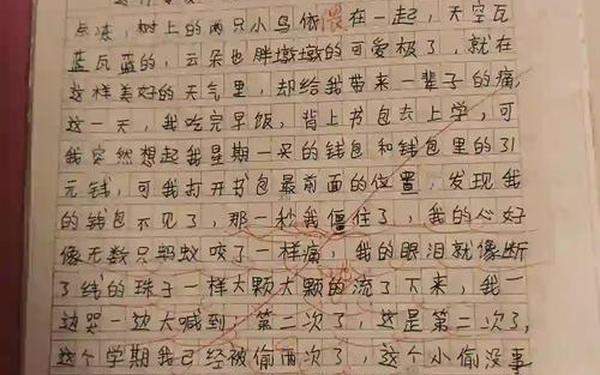 点冻，树上的两只小鸟依偎在一起，天空瓦
蓝瓦蓝的，云朵也胖墩墩的可爱极了，就在
这样美好的天气里，却给我带来一辈子的痛，
这一天，我吃完早饭，背上书包去上学，可
我突然想起我星期一买的钱包和钱包里的31
元钱，可我打开书包最前面的位置，发现我
的钱包不见了，那一秒我僵住了，我的心好
像无数只蚂蚁咬了一样痛，我的眼泪就像断
了线的珠子一样大颗大颗的流了下来，我一
边哭一边大喊到：第二次了，这是第二次了，
这个学期我已经被偷两次了，这个小偷没事